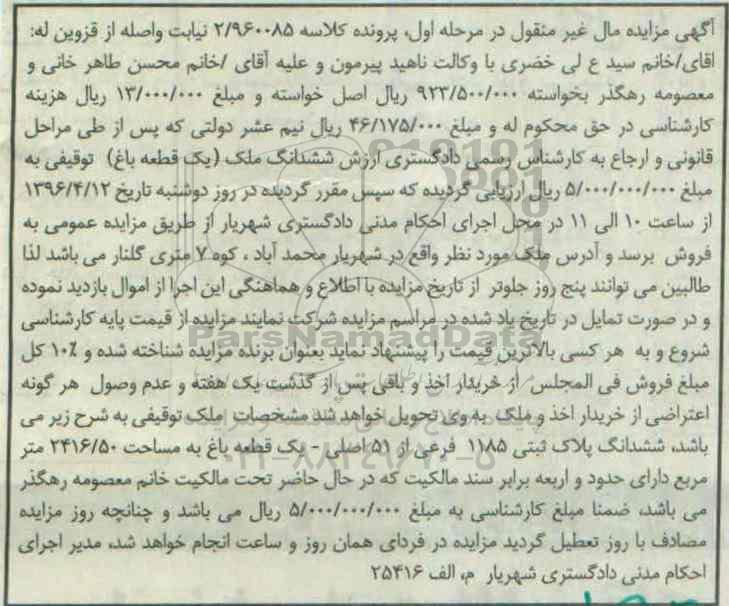 آگهی مزایده مال غیر منقول در مرحله اول، پرونده کلاسه ۲/۹۶۰۰۸۵ نیابت واصله از قزوین له:
اقای/خانم سید ع لی خضری با وکالت ناهید پیرمون و علیه آقای /خانم محسن طاهر خانی و
معصومه رهگذر بخواسته ۹۲۳/۵۰۰/۰۰۰ ریال اصل خواسته و مبلغ ۱۳/۰۰۰/۰۰۰ ریال هزینه
کارشناسی در حق محکوم له و مبلغ ۴۶/۱۷۵/۰۰۰ ریال نیم عشر دولتی که پس از طی مراحل
قانونی و ارجاع به کارشناس رسمی دادگستری ارزش ششدانگ ملک (یک قطعه باغ) توقیفی به
مبلغ ۵/۰۰۰/۰۰۰/۰۰۰ ریال ارزیابی گردیده که سپس مقرر گردیده در روز دوشنبه تاریخ ۱۳۹۶/۴/۱۲
از ساعت ۱۰ الی ۱۱ در محل اجرای احکام مدنی دادگستری شهریار از طریق مزایده عمومی به
فروش برسد و آدرس ملک مورد نظر واقع در شهریار محمد آباد ، کوه ۷ متری گلنار می باشد لذا
طالبین می توانند پنج روز جلوتر از تاریخ مزایده با اطلاع و هماهنگی این اجرا از اموال بازدید نموده
و در صورت تمایل در تاریخ یاد شده در مراسم مزایده شرکت نمایند مزایده از قیمت پایه کارشناسی
شروع و به هر کسی بالاترین قیمت را پیشنهاد نماید بعنوان برنده مزایده شناخته شده و ۱۰٪ کل
مبلغ فروش فی المجلس از خریدار اخذ و باقی پس از گذشت یک هفته و عدم وصول هر گونه
اعتراضی از خریدار اخذ و ملک به وی تحویل خواهد شد مشخصات املک توقیفی به شرح زیر می
باشد، ششدانگ پلاک ثبتی ۱۱۸۵ فرعی از ۵۱ اصلی - یک قطعه باغ به مساحت ۲۴۱۶/۵۰ متر
مربع دارای حدود و اربعه برابر سند مالکیت که در حال حاضر تحت مالکیت خانم معصومه رهگذر
می باشد، ضمنا مبلغ کارشناسی به مبلغ ۵/۰۰۰/۰۰۰/۰۰۰ ریال می باشد و چنانچه روز مزایده
مصادف با روز تعطیل گردید مزایده در فردای همان روز و ساعت انجام خواهد شد، مدیر اجرای
احکام مدنی دادگستری شهریار م، الف ۲۵۴۱۶
ParsNamadData
۰۲۱-۸۸۳۴۹۶۷۰-۵